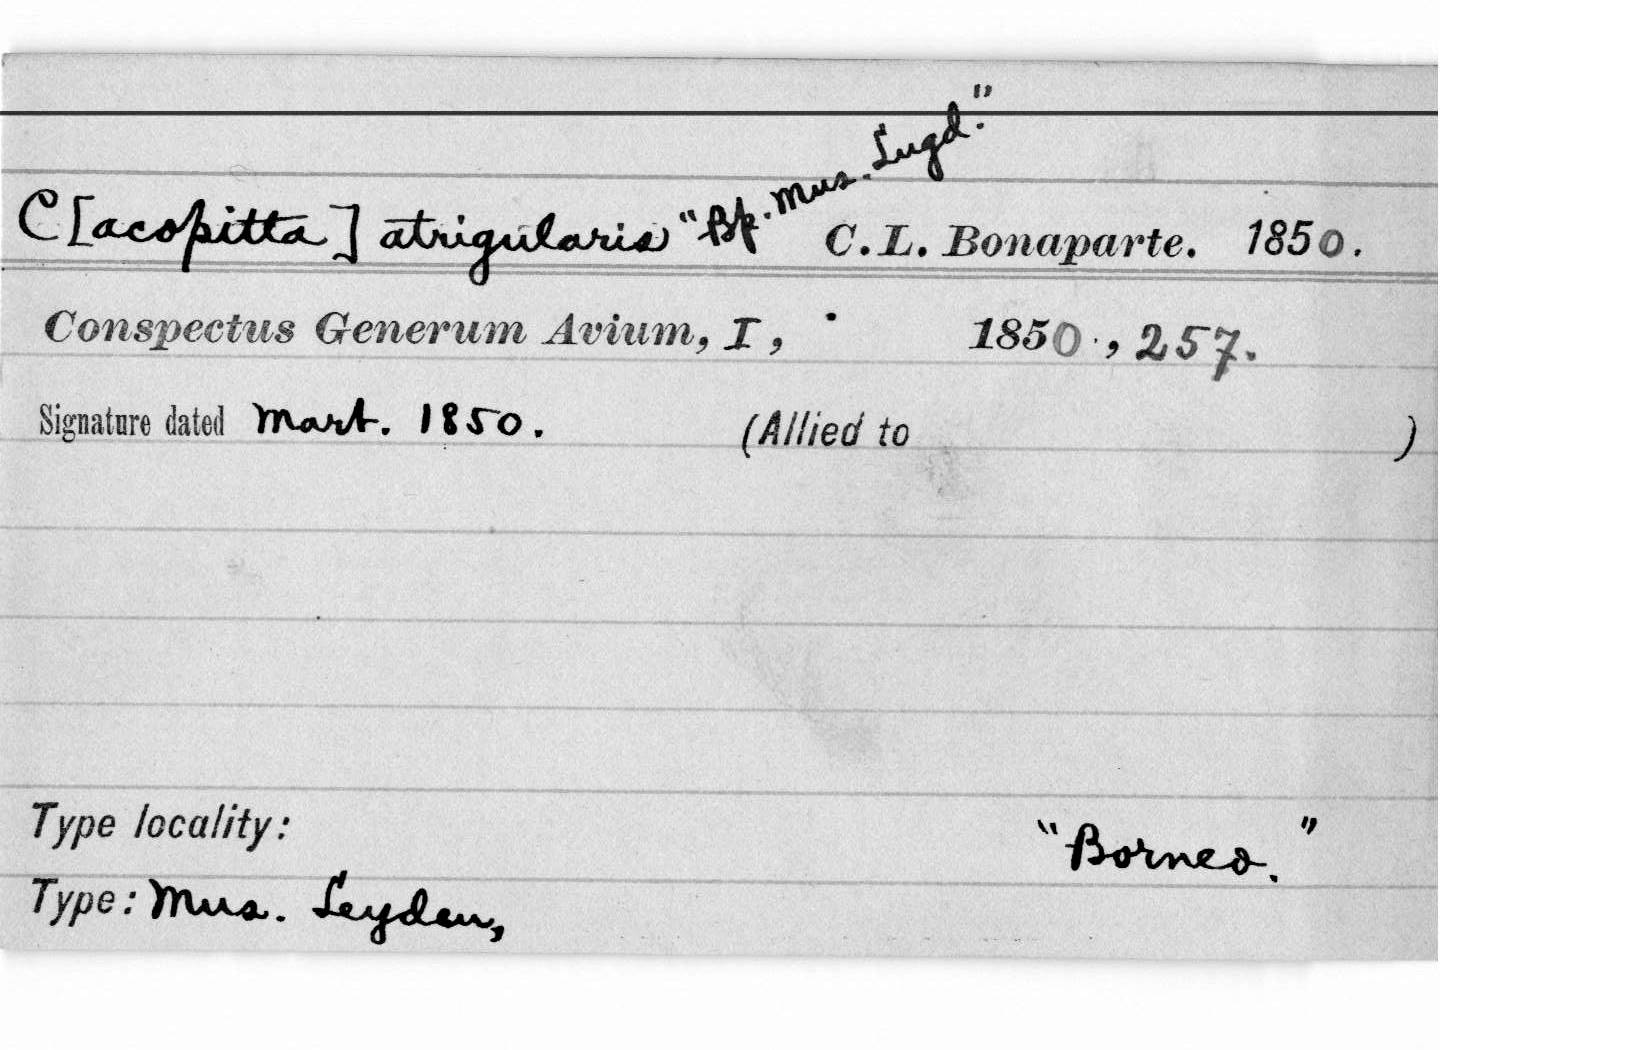 C[acopitta] atrigularis "Bp. Mus. Lugd." C. L. Bonaparte. 1850.
Conspectus Generum Avium, I, 1850., 257.
Signature dated Mart. 1850. (Allied to )
Type locality: "Borneo."
Type: Mus. Leyden,